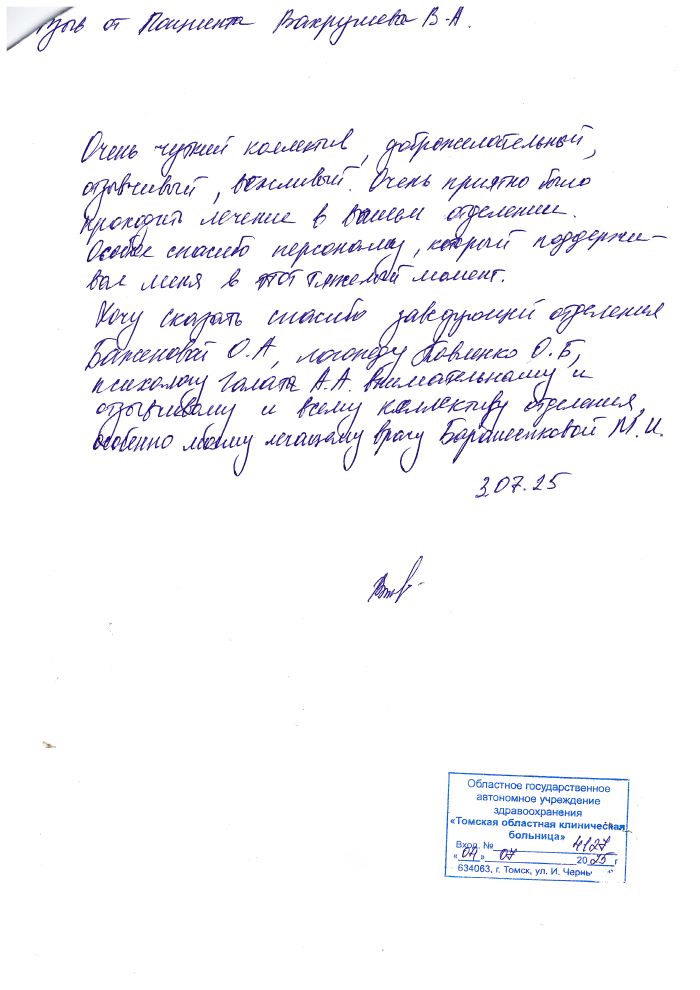 зыв от Пациента Вахрушева В.А.
Очень чуткий коллектив, доброжелательный,
отзывчивый, вежливый. Очень приятно было
проходить лечение в вашем отделении.
Особое спасибо персоналу, который поддержи-
вал меня в этот тяжелый момент.
Хочу сказать спасибо заведующей отделения
Баженовой О.А, логопеду Павленко О.Б,
психологу Галата А.А. внимательному и
отзывчивому и всему коллективу отделения,
особенно моему лечащему врачу М.И.
3.07.25
Областное государственное
автономное учреждение
здравоохранения
«Томская областная клиническая
больница»
Вход. № 4127
«04» 07 2025г
634063, г. Томск, ул. И. Черны